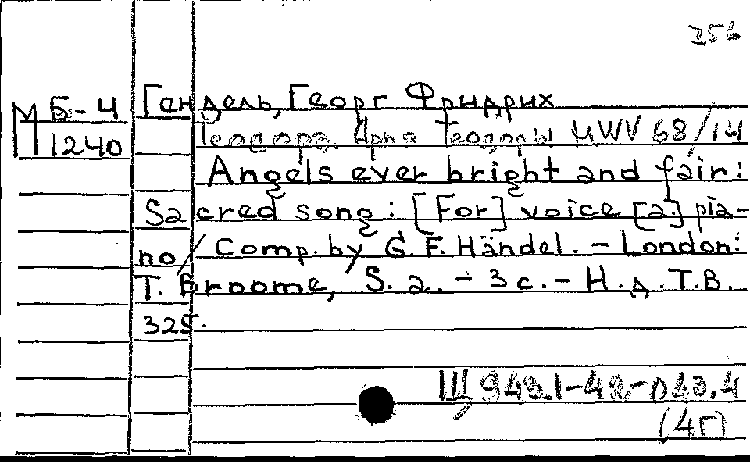 М Б-4
1240
Гендель, Георг Фридрих
Теодора. Ария Теодоры HWV 68/14
Angels ever bright and fair:
Sacred song: [For] voice [a.] pia-
no / Comp. by G. F. Händel. - London:
T. Broome, S. a. - 3 с. - Н. д. T.B.
325.
Щ 943.1-42-043.4
(4Г)